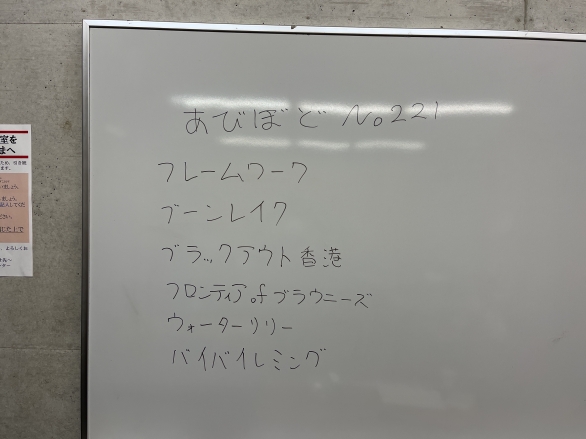 あびぼど No.221
フレームワーク
ブーンレイク
ブラックアウト香港
フロンティア of ブラウニーズ
ウォーターリリー
バイバイレミング
室を
まへ